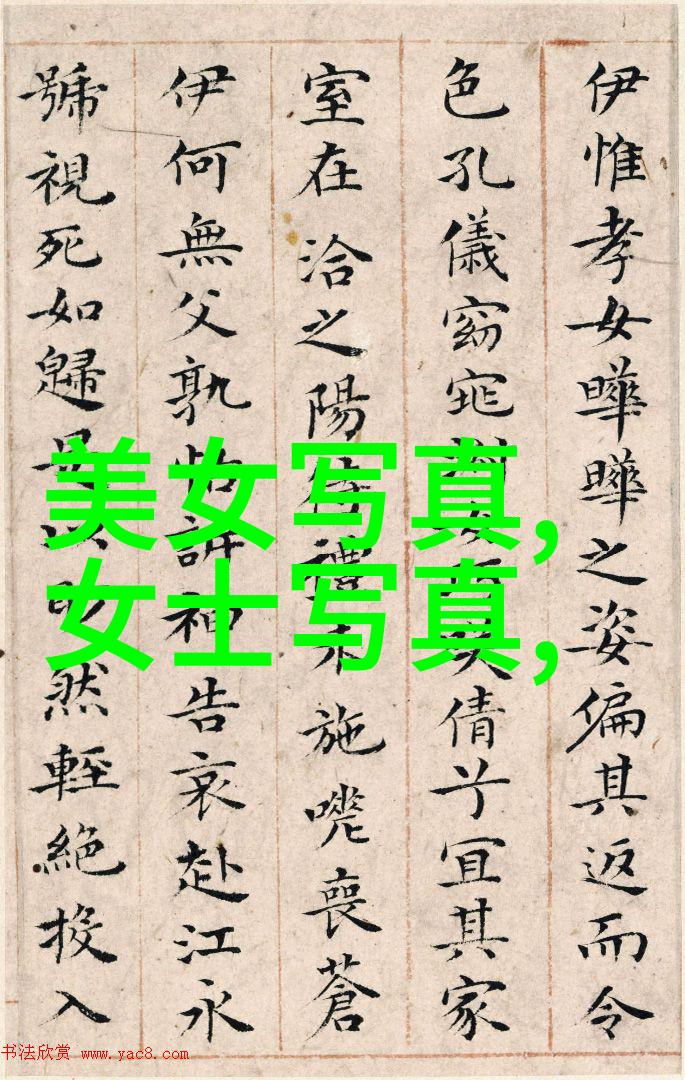 伊惟孝女曄曄之姿偏其返而令
色孔儀窈窕淑女巧笑倩兮宜其家
室在洽之陽待禮未施嗟喪蒼
伊何無父孰怙訴神告哀赴江永
號視死如歸是以眇然輕絕投入
美女写真,
女士写真,
书法欣赏 www.yac8.com